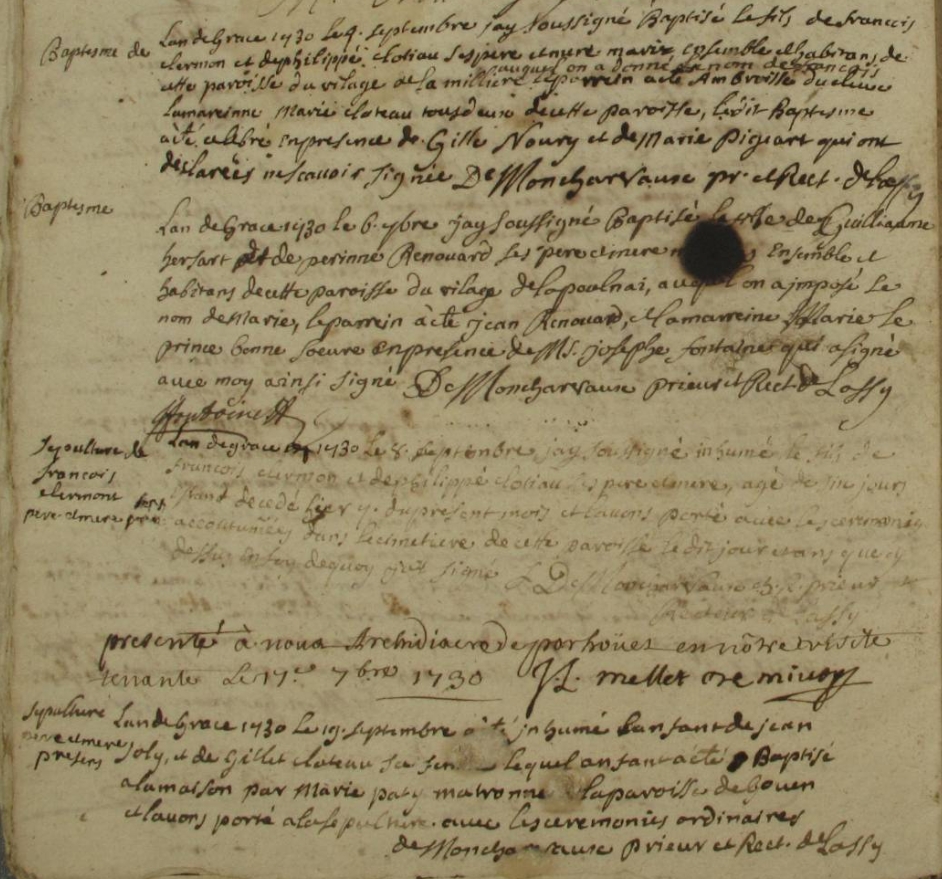 Baptesme de
Lan de Grace 1730 le 4. septembre jay soussigné Baptisé le fils de francois
clermon et de philippé clotiau ses pere et mere mariez ensemble et habitans de
auquel on a donné le nom de francois
cette paroisse du vilage de la milliere le parrein a été Ambroisse
la mareinne Marie cloteau tous deux de cette paroisse, le dit Baptesme
a été celebré en presence de Gille Noury et de Marie Pigeart qui ont
declarées ne scavoir signée De Moncharvaux pr. et Rect. de Lassy
Baptesme
Lan de Grace 1730 le 6. 7bre jay soussigné Baptisé la fille de Guilliaume
hersart et de perinne Renouard ses pere et mere Ensemble et
habitans de cette paroisse du vilage de la poulnai, auquel on a jmposé le
nom de Marie, le parrein a été jean Renouard, et la marreine Marie le
prince bonne soeure en presence de Ms. josephe fontaine qui a signé
avec moy ainsi signé De Moncharvaux prieur et Rect. de Lassy
Sepouture de
francois
clermont
pere et mere
Lan de grace 1730 Le 8. septembre jay soussigné inhumé le fils de
francois clermon et de philippé clotiau ses pere et mere, agé de jours
decedé hier 7. du present mois et lavons porté avec les ceremonies
accoutumées dans le cimetiere de cette paroisse le dit jour et ans que cy
dessus en foy de quoy j'ay signé De Moncharvaux prieur
Recteur de Lassy
presenté à nous Archidiacre de porhoüet en nôtre visite
tenante Le 17e 7bre 1730
Sepulture
pere et mere
presens
Lan de Grace 1730 le 19. septembre a été jnhumé Lansant de jean
joly, et de Gillet cloteau sa lequel ansant a été Baptisé
a la maison par Marie paty matronne la paroisse de Goven
et lavons porté a la sepulture avec les ceremonies ordinaires
de Moncharvaux Prieur et Rect. de Lassy